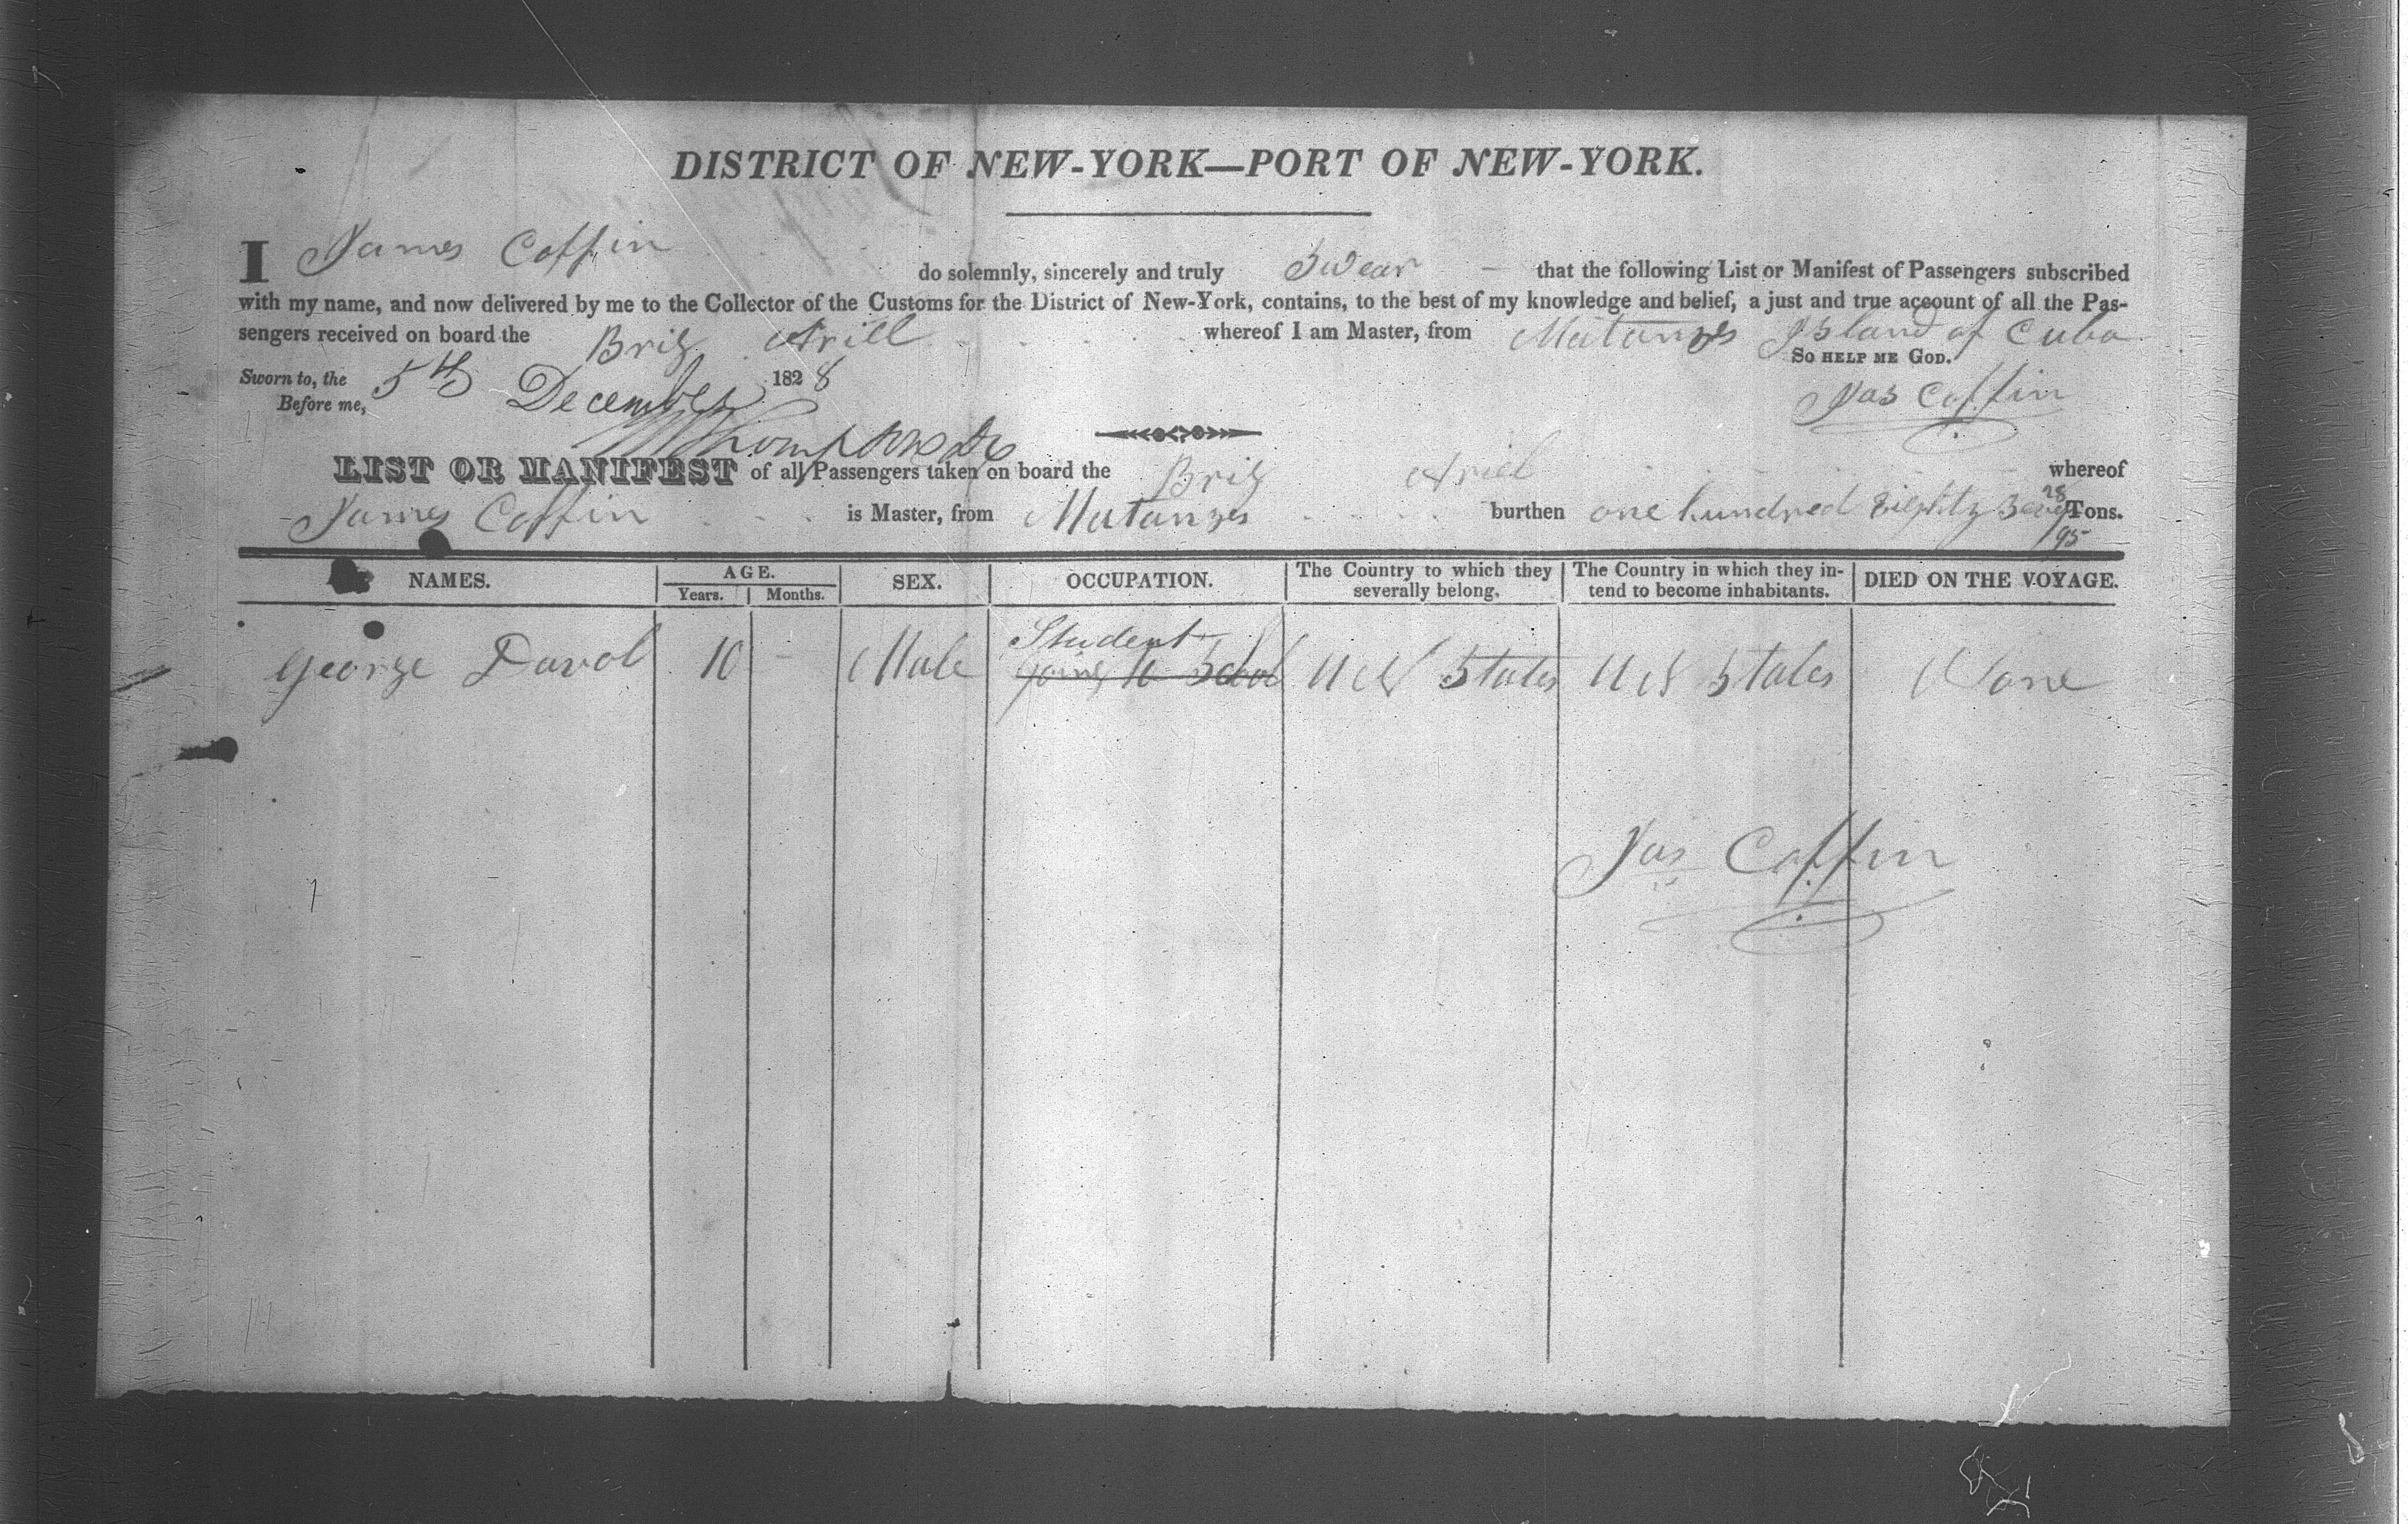 DISTRICT OF NEW-YORK—PORT OF NEW-YORK.
I James Coffin do solemnly, sincerely and truly Swear that the following List or Manifest of Passengers subscribed
with my name, and now delivered by me to the Collector of the Customs for the District of New-York, contains, to the best of my knowledge and belief, a just and true account of all the Pas-
sengers received on board the Brig Ariell whereof I am Master, from Matanzes Island of Cuba
SO HELP ME GOD.
Sworn to, the 5th December 1828
Before me,
Jas Coffin
LIST OR MANIFEST of all Passengers taken on board the Brig Ariel whereof
James Coffin is Master, from Matanzes burthen one hundred Eighty Seven 28/95 Tons.
NAMES. AGE. SEX. OCCUPATION. The Country to which they severally belong. The Country in which they in-tend to become inhabitants. DIED ON THE VOYAGE.
Years. Months.
Student
George Davol 10 - Male going to School U S States U S States None
Jas Coffin